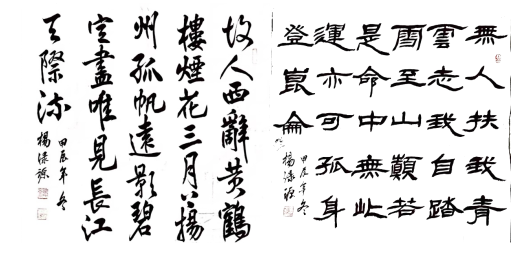 故人西辭黄鶴
樓煙花三月下揚
州孤帆遠影碧
空盡唯見長江
天際流
甲辰年冬
楊
無人扶我青
雲志我自踏
雪至山顛若
是命中無此
運亦可孤身
登崑侖
甲辰年冬
楊